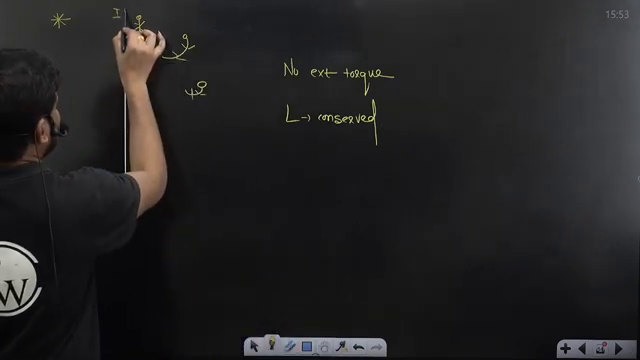 15:53
I
No ext torque
L → conserved
W